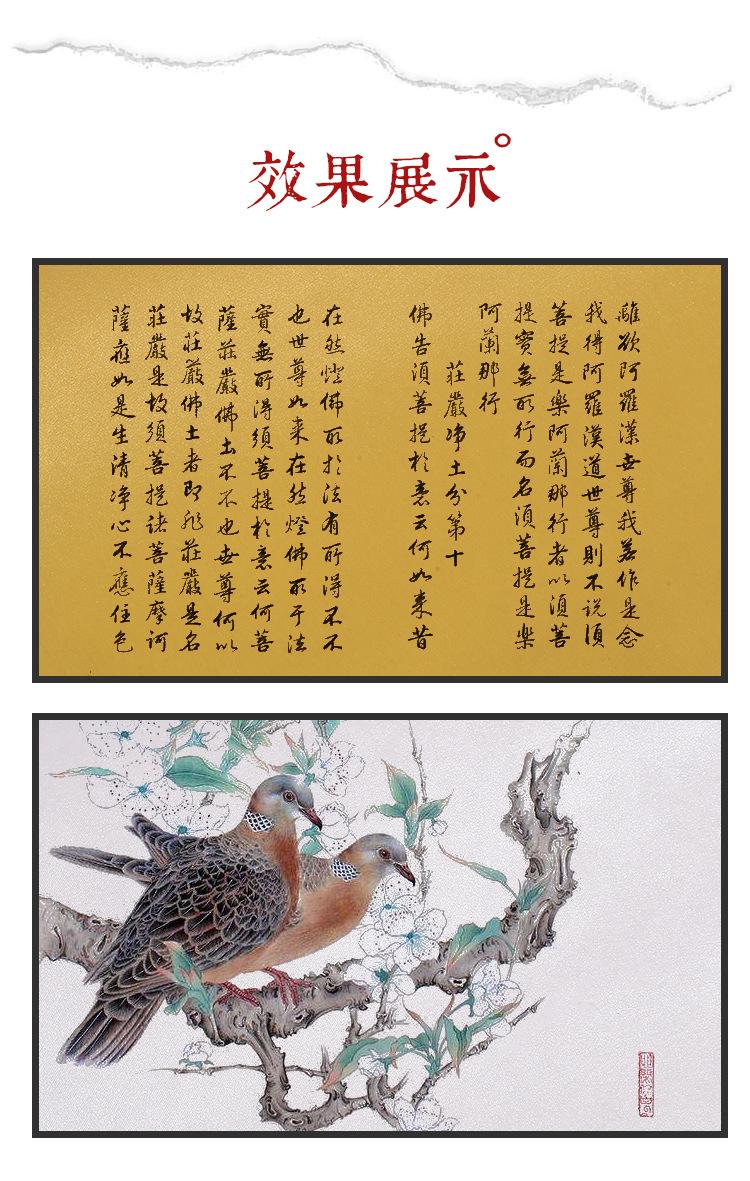 效果展示
離欲阿羅漢世尊我若作是念
我得阿羅漢道世尊則不说須
菩提是樂阿蘭那行者以須菩
提實無所行而名須菩提是樂
阿蘭那行
莊嚴净土分第十
佛告須菩提於意云何如来昔
在然燈佛所於法有所得不不
也世尊如来在然燈佛所于法
實無所得須菩提於意云何菩
薩莊嚴佛土不不也世尊何以
故莊嚴佛土者即非莊嚴是名
莊嚴是故須菩提诸菩薩摩诃
薩應如是生清净心不應住色